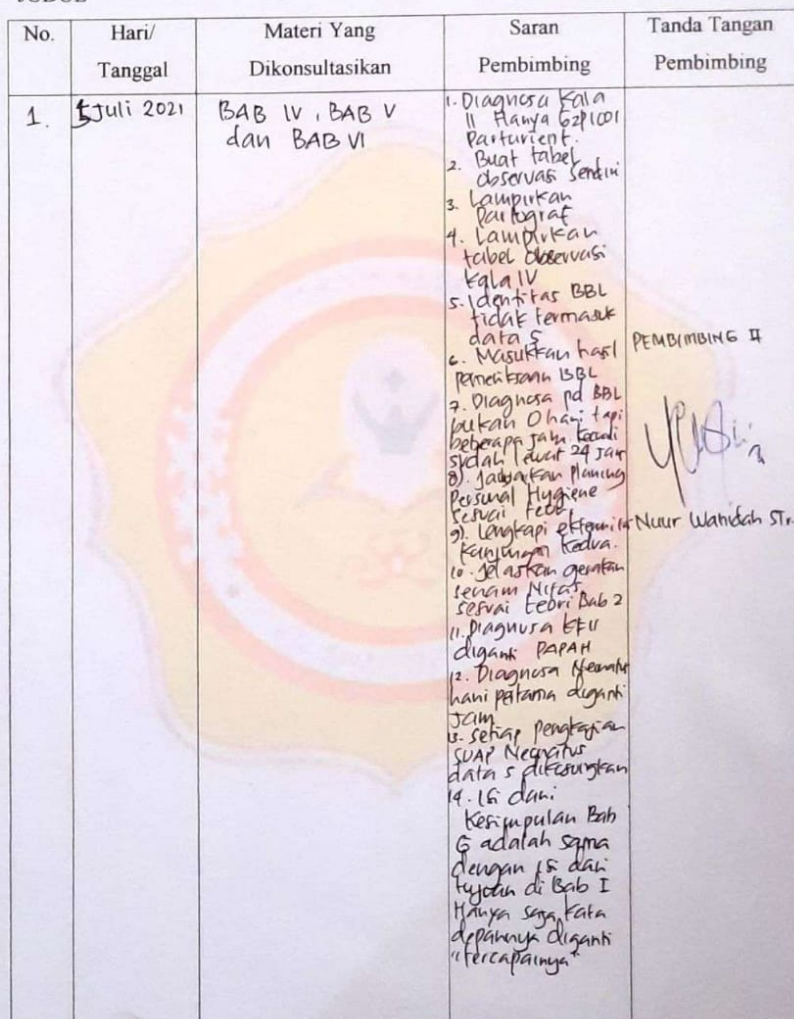 No.
Hari/
Tanggal
Materi Yang
Dikonsultasikan
Saran
Pembimbing
Tanda Tangan
Pembimbing
1.
5 Juli 2021
BAB IV, BAB V
dan BAB VI
1. Diagnosa Kala
II Hanya G2P1001
Parturient.
2. Buat tabel
observasi sendiri
3. Lampirkan
Partograf
4. Lampirkan
tabel observasi
Kala IV
5. Identitas BBL
tidak termasuk
data S
6. Masukkan hasil
pemeriksaan BBL
7. Diagnosa pd BBL
bukan 0 hari tapi
beberapa jam kecuali
sudah lewat 24 jam
8). Jabarkan Planing
Personal Hygiene
sesuai teori
9). Lengkapi
kunjungan kedua.
10. Jelaskan gerakan
senam Nifas
sesuai teori Bab 2
11. Diagnosa KF II
diganti PAPAH
12. Diagnosa Neonatus
hari pertama diganti
Jam
13. Setiap pengkajian
SOAP Neonatus
data S dikosongkan
14. Isi dari
Kesimpulan Bab
6 adalah sama
dengan isi dari
tujuan di Bab I
Hanya saja kata
depannya diganti
"tercapainya"
PEMBIMBING II
Nuur Wanidah STr.